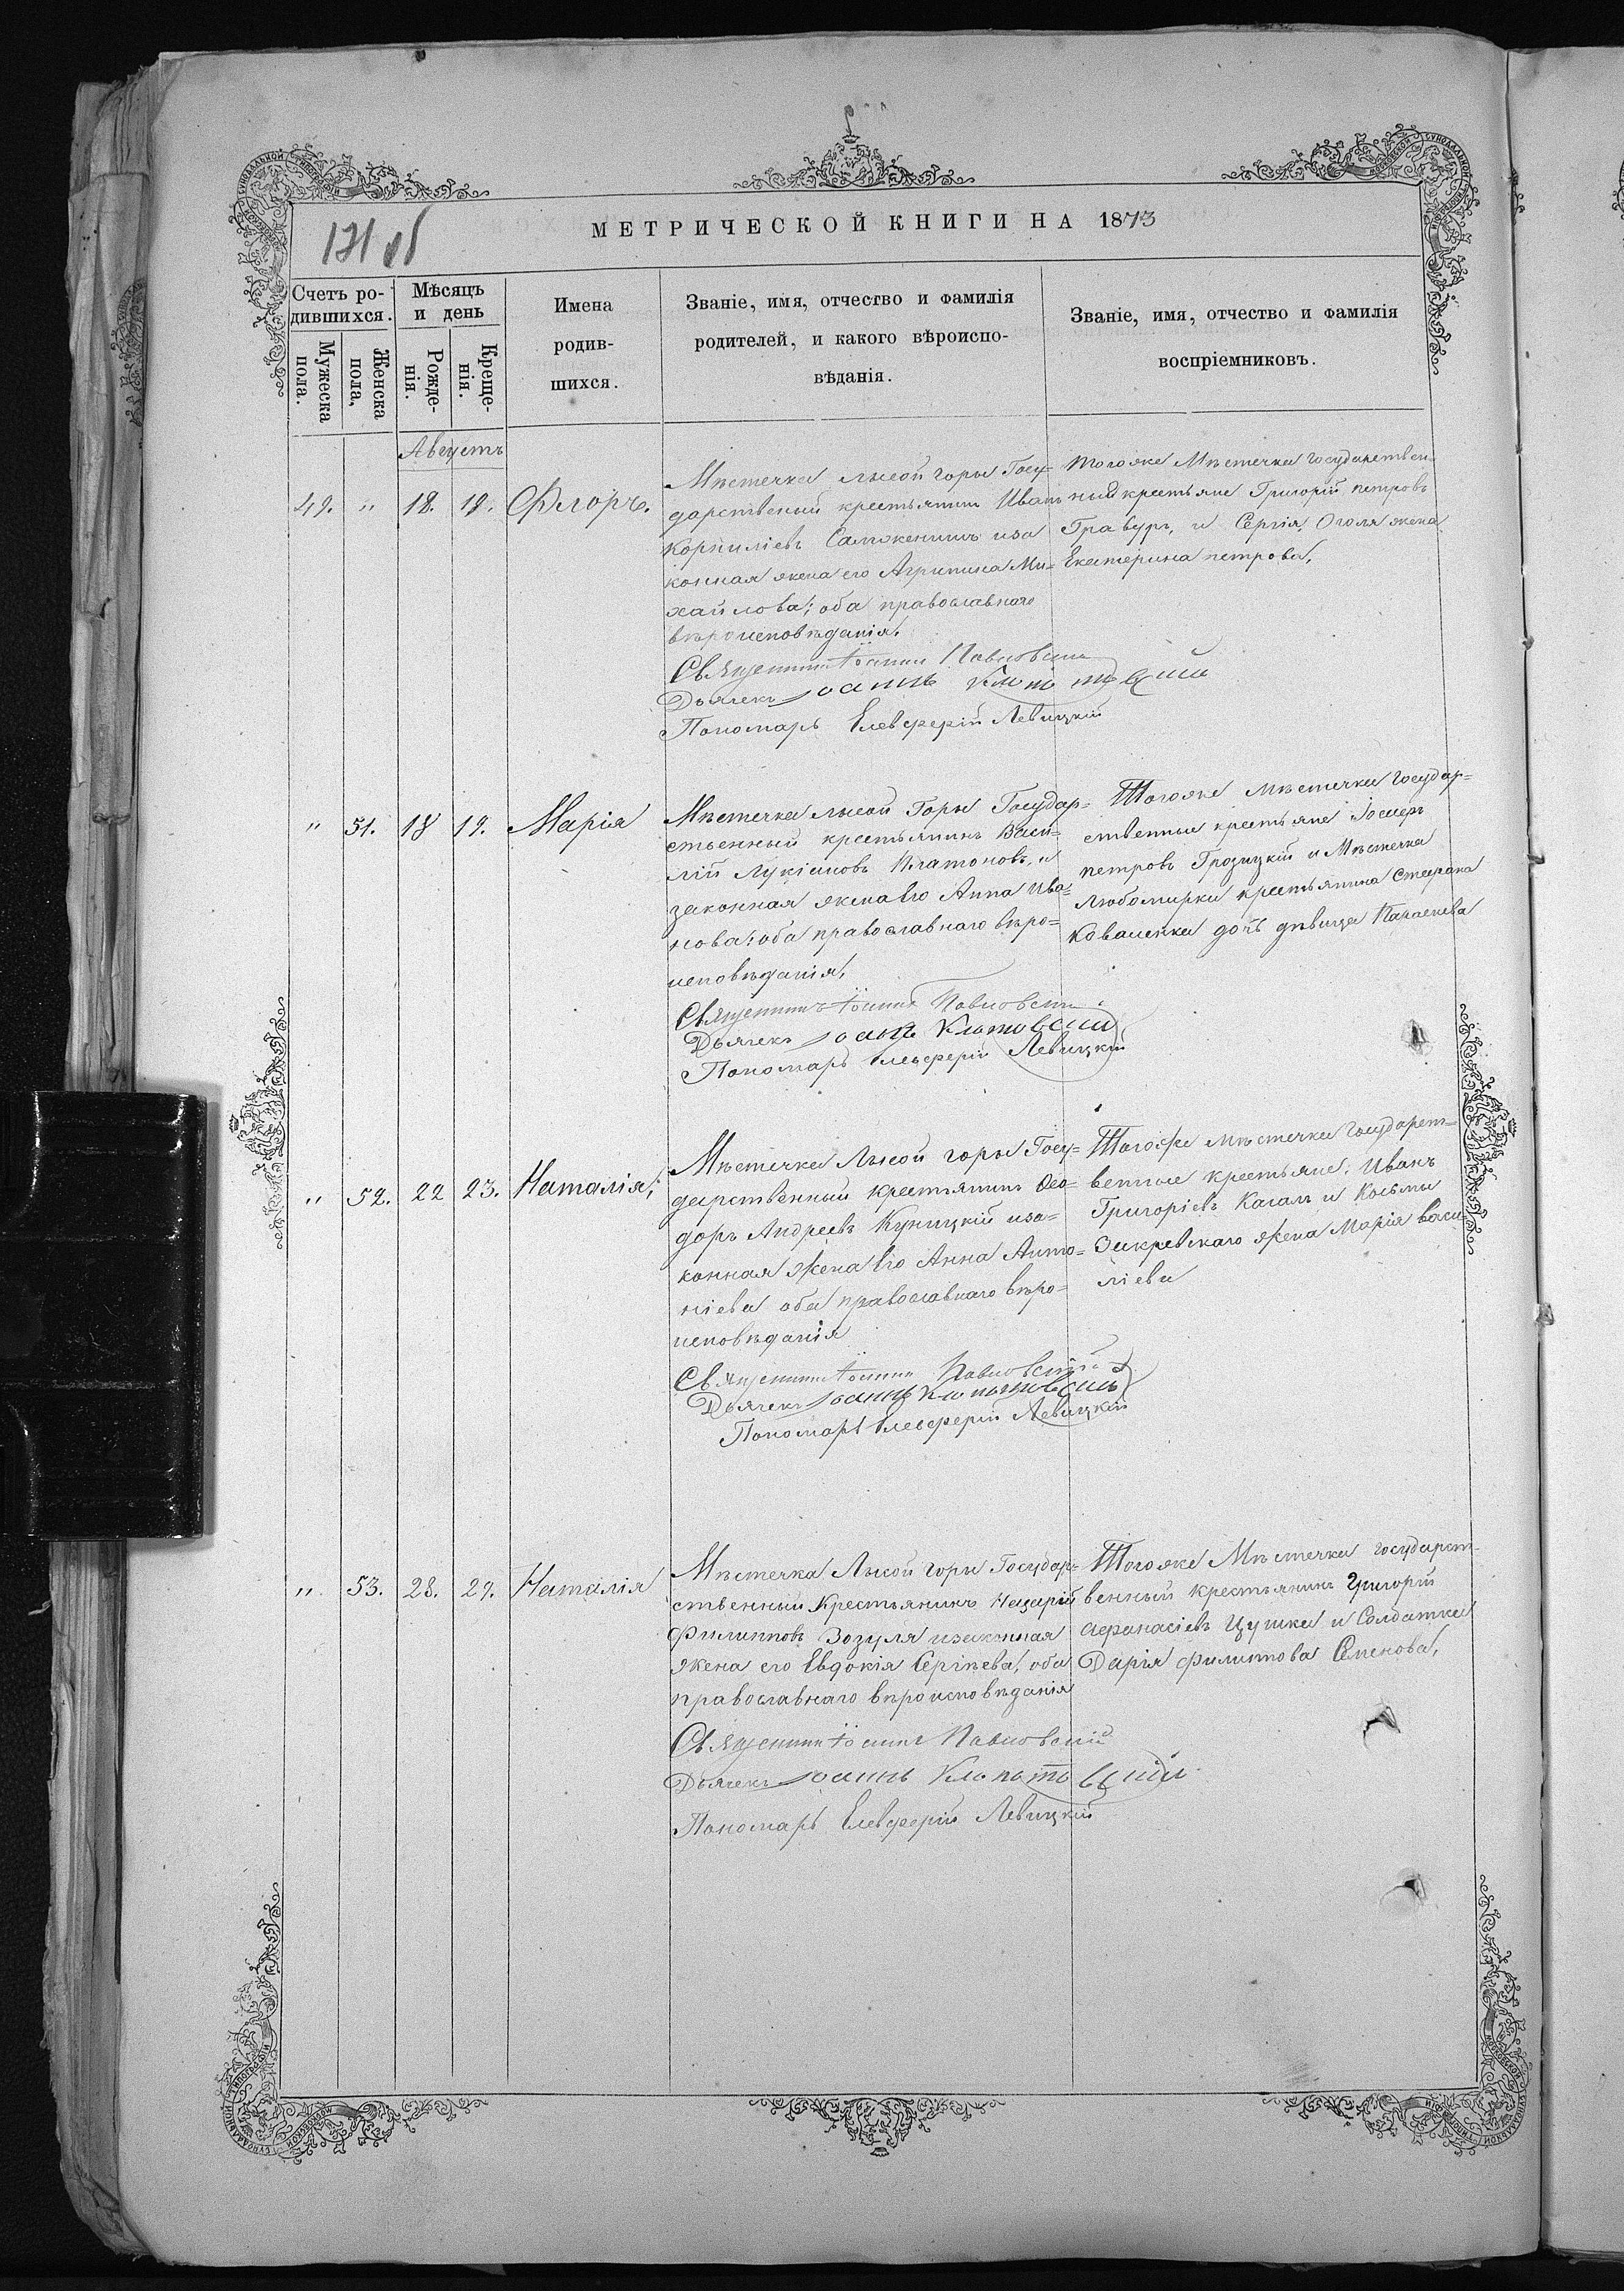 171 об
МЕТРИЧЕСКОЙ КНИГИ НА 1873
Счетъ ро-
дившихся.
Мужеска
пола.
Женска
пола,
Мѣсяцъ
и день
Рожде-
нія.
Креще-
нія.
Имена
родив-
шихся.
Званіе, имя, отчество и фамилія
родителей, и какого вѣроиспо-
вѣданія.
Званіе, имя, отчество и фамилія
воспріемниковъ.
Августъ
49. " 18. 19. Флоръ.
Мѣстечка лысой горы Госу-
дарственый крестьянинъ Иванъ
Корниліевъ иза
конная жена его Агрипина Ми-
хайлова; оба православнаго
вѣроисповѣданія.
Священникъ Іоаннъ Павловскій
Дьячекъ Іоаннъ
Пономарь Елевферій Левицкій
тогоже Мѣстечка государствен-
ний крестьяне Григорій петровъ
и Сергія Оголя жена
Екатерина петрова,
" 51. 18 19. Марія
Мѣстечка лысой Горы Государ-
ственный крестьянинъ Васи-
лій Лукіановъ Платоновъ, и
законная жена его Анна Ива-
нова; оба православнаго вѣро-
исповѣданія,
Священникъ Іоаннъ Павловскій
Дьячекъ Іоаннъ
Пономарь Елевферій Левицкій
Тогоже мѣстечка государ-
ственные крестьяне Іосифъ
петровъ Грозицкій и Мѣстечка
Любомирки крестьянина Стефана
Коваленка дочь дѣвица Параскева
" 52. 22 23. Наталія;
Мѣстечка Лысой горы Госу-
дарственный крестьянинъ Ѳео-
доръ Андреевъ Куницкій иза-
конная жена Его Анна Анто-
ніева оба православнаго вѣро-
исповѣданія
Священникъ Іоаннъ Павловскій
Дьячекъ Іоаннъ Клопотовскій
Пономарь Елевферій Левицкій
Тогоже мѣстечка государст-
венные крестьяне, Иванъ
Григоріевъ Кагалъ и Косьмы
Закревскаго жена Марія васи-
ліева
" 53. 28. 29. Наталія
Мѣстечка Лысой горы Государ-
ственный Крестьянинъ Назарій
Филиповъ Зозуля изаконная
жена его Евдокія Сергѣева, оба
православнаго вѣроисповѣданія
Священникъ Іоаннъ Павловскій
Дьячекъ Іоаннъ Клопотовскій
Пономарь Елевферій Левицкій
Тогоже Мѣстечка государст-
венный крестьянинъ Григорій
Афанасіевъ Цушка и Солдатка
Дарія филипова Семенова,